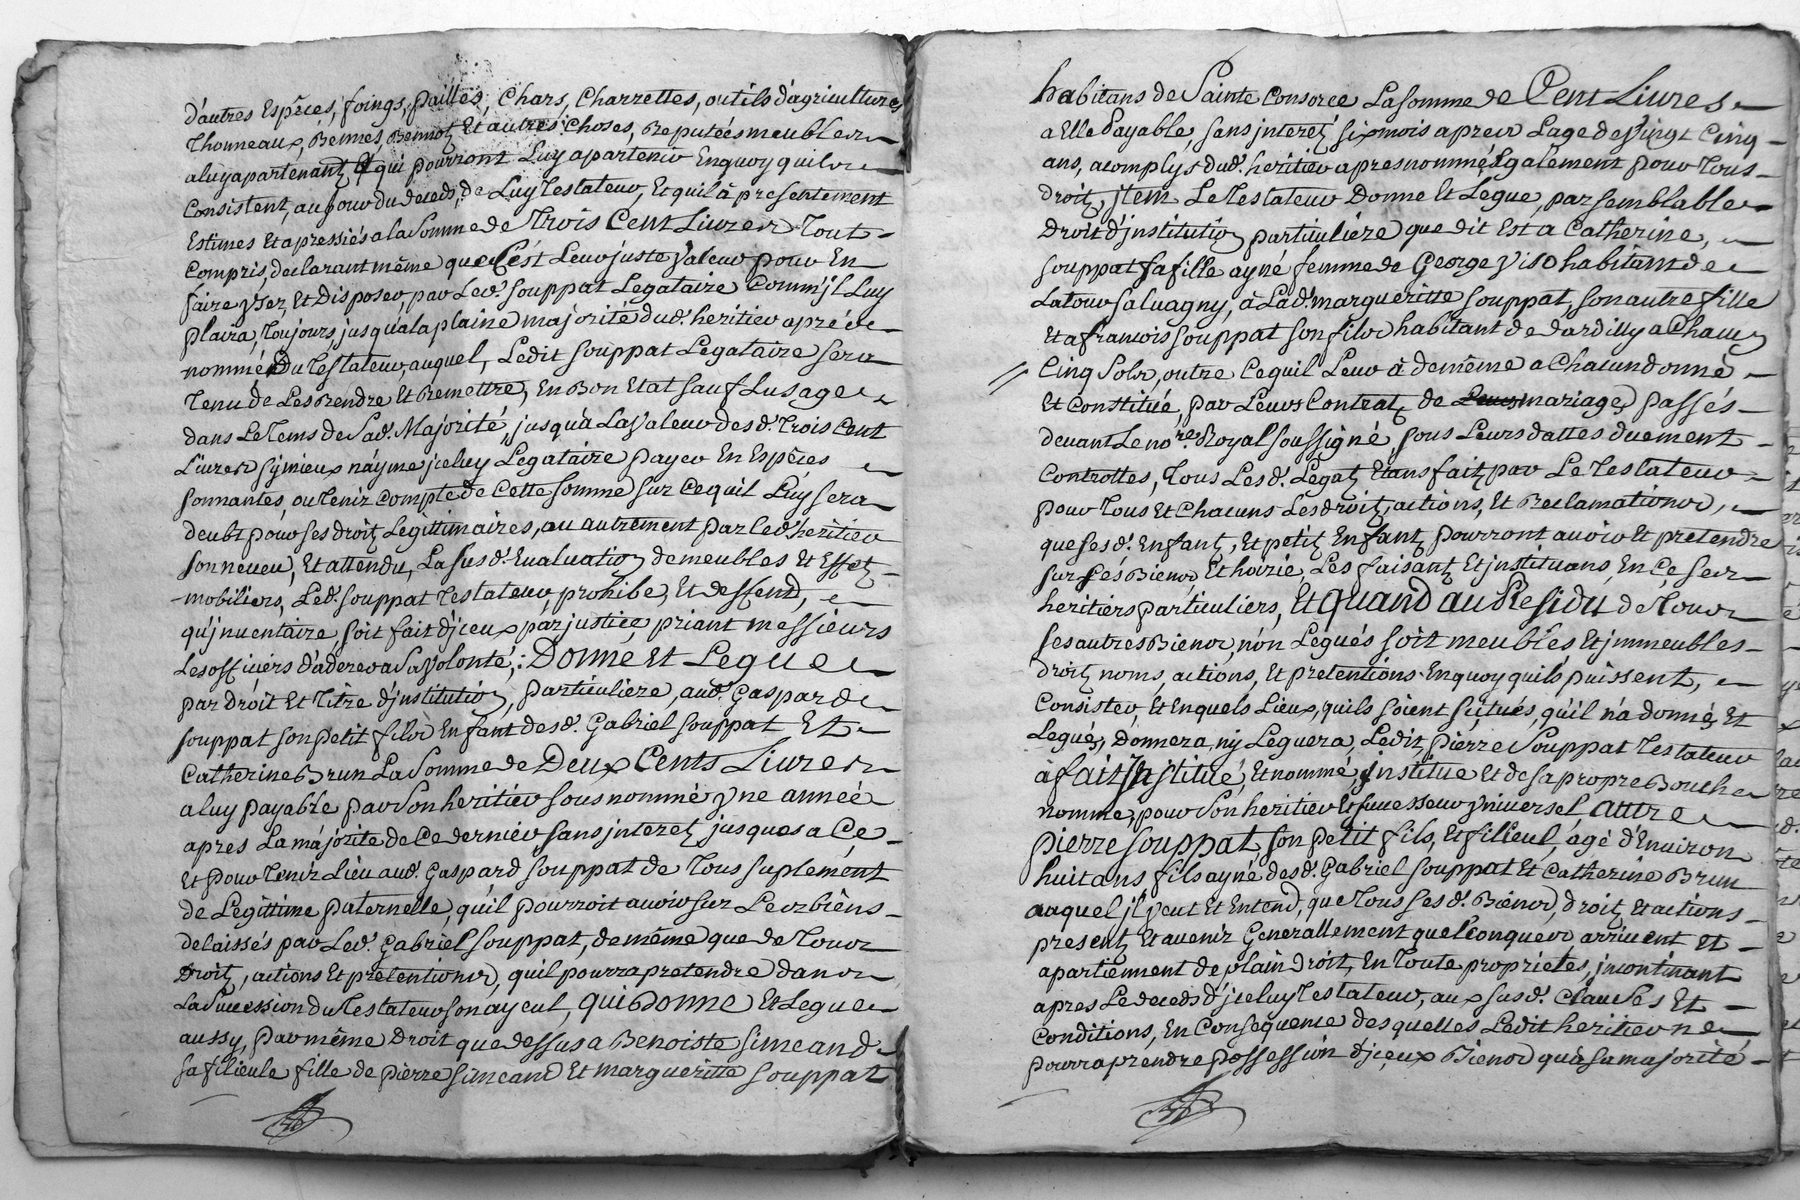 d'autres Espêces, foings, pailles, Chars, Charrettes, outils d'agriculture,
Thonneaux, Bennes, Bennot, Et autres Choses, Reputées meubles
a luy apartenant, Et qui pourront Luy apartenir En quoy quils
Consistent, au jour du deceds, de Luy Testateur, Et quil à presentement
Estimés Et apressiés a la Somme de Trois Cent Livres Tout
Compris, declarant même que C'ést Leur juste valeur pour En
faire User, Et Disposer, par Led. Souppat Legataire Comm'jl Luy
plaira, Toujours, jusqu'a la plaine majorité dud. heritier aprés
nommé Du Testateur, auquel, Ledit Souppat Legataire sera
Tenu de Les Rendre Et Remettre, En Bon Etat sauf Lusage
dans Le Tems de Sad. Majorité, jusqu'à La valeur desd. Trois Cent
Livres sy mieux n'ayme jceluy Legataire payer En Espêces
sonnantes, ou Tenir Compte de Cette Somme sur Ce quil Luy sera
deubt pour ses droits Legittimaires, ou autrement par led. heritier
son neveu, Et attendu, La susd. Evaluation de meubles Et Effets
mobiliers, Led. Souppat Testateur, prohibe, Et deffend,
qu'jnventaire soit fait d'jceux par justice, priant messieurs
Les officiers d'aderer a Sa volonté; Donne Et Legue
par droit Et Titre d'jnstitution, particuliere, aud. Gaspard
Souppat son petit fils Enfant desd. Gabriel Souppat Et
Catherine Brun La Somme de Deux Cents Livres
a luy payable par Son heritier sous nommé Une année
apres La majorité de Ce dernier sans jnteret jusques a Ce,
Et pour Tenir Lieu aud. Gaspard Souppat de Tous suplement
de Legittime paternelle, quil pourroit avoir sur Les biens
delaissés par Led. Gabriel Souppat, de même que de Tous
Droits, actions Et pretentions, quil pourra pretendre dans
La Succession du Testateur son ayeul, qui Donne Et Legue
aussy, par même Droit que dessus a Benoiste Simeand
sa filieule fille de pierre Simeand Et margueritte Souppat
habitans de Sainte Consorce La Somme de Cent Livres
a Elle Payable, sans jnteret six mois apres L'age de Vingt Cinq
ans, acomplys dud. heritier apres nommé, Egalement pour Tous
droits, jtem Le Testateur Donne Et Legue, par semblable
Droit d'jnstitution particuliére que dit Est a Catherine,
Souppat sa fille ayné femme de George Viso habitant de
Latour Salvagny, à Lad. margueritte Souppat, son autre fille
Et a francois Souppat son fils habitant de dardilly a Chacun
Cinq Sols, outre Ce quil Leur à de même a Chacun donné
Et Constitué par Leurs Contrats de mariages passés
devant Le no.re Royal soussigné sous Leurs dattes duement
Controttes, Tous Lesd. Legats Etans faits par Le Testateur
pour Tous Et Chacuns Les droits, actions, Et Reclamations,
que ses d. Enfants, Et petits Enfants pourront avoir Et pretendre
sur Ses Biens, Et hoirie, Les faisants Et jnstituans En Ce Ses
heritiers particuliers, Et quand au Residu de Tous
ses autres Biens, nón Legués soit meubles Et jmmeubles
droits, noms, actions, Et pretentions En quoy quils puissent,
Consister, Et En quels Lieux, quils soient scitués, qu'il n'a donné, Et
Legué, Donnera, ny Leguera, Ledit, pierre Souppat Testateur
à fait Institué, Et nommé, Institue Et de sa propre Bouche
nomme, pour Son heritier Et successeur Universel, autre
pierre Souppat son petit fils, Et filieul, agé d'Environ
huit ans fils ayné desd. Gabriel Souppat Et Catherine Brun
auquel jl veut Et Entend, que Tous Ses d. Biens, droits, Et actions
presents Et avenir Generallement quelconques arrivent Et
apartiennent de plain droit, En Toute proprietes, jncontinant
apres Le deceds d'jceluy Testateur, aux susd. Clauses Et
Conditions, En Consequence des quelles Ledit heritier ne
pourra prendre possession d'jceux Biens qu'à sa majorité